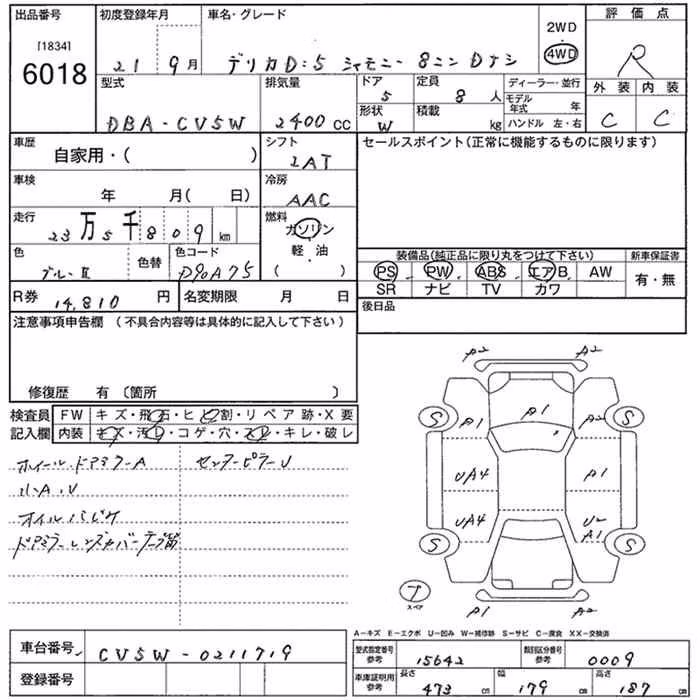 出品番号 初度登録年月 車名・グレード 2WD 評価点
[1834]
6018 21 9月 デリカD:5 シャモニー 8ニン Dナシ 4WD R
型式 排気量 ドア 定員 ディーラー・並行 外装 内装
5 8人 モデル年式 年
DBA-CV5W 2400cc 形状 W 積載 kg ハンドル 左・右 C C
車歴 自家用・( ) シフト 2AT セールスポイント(正常に機能するものに限ります)
車検 年 月( 日) 冷房 AAC
走行 23万5千809km 燃料 ガソリン
軽・油
( )
色 色替 色コード 装備品(純正品に限り丸をつけて下さい) 新車保証書
ブルーⅡ D90A75 PS PW ABS エアB AW 有・無
SR ナビ TV カワ
R券 14,810円 名変期限 月 日 後日品
注意事項申告欄(不具合内容等は具体的に記入して下さい)
修復歴 有〔箇所 〕
検査員 FW キズ・飛石・ヒビ割・リペア跡・X要
記入欄 内装 キズ・汚レ・コゲ・穴・スレ・キレ・破レ
ホイール・ドアミラーA センターピラーU
小A.U
オイルパビケ
ドアミラーレンズカバー
A2 A2
A1 A1 A2
S S
UA4 A1
UA4 U2
A1
S S
T
スペア
A1 A2
A-キズ E-エクボ U-凹み W-補修跡 S-サビ C-腐食 XX-交換済
車台番号 CV5W-0211719 型式指定番号 参考 15642 類別区分番号 参考 0009
登録番号 車庫証明用 参考 長さ 473cm 幅 179cm 高さ 187cm